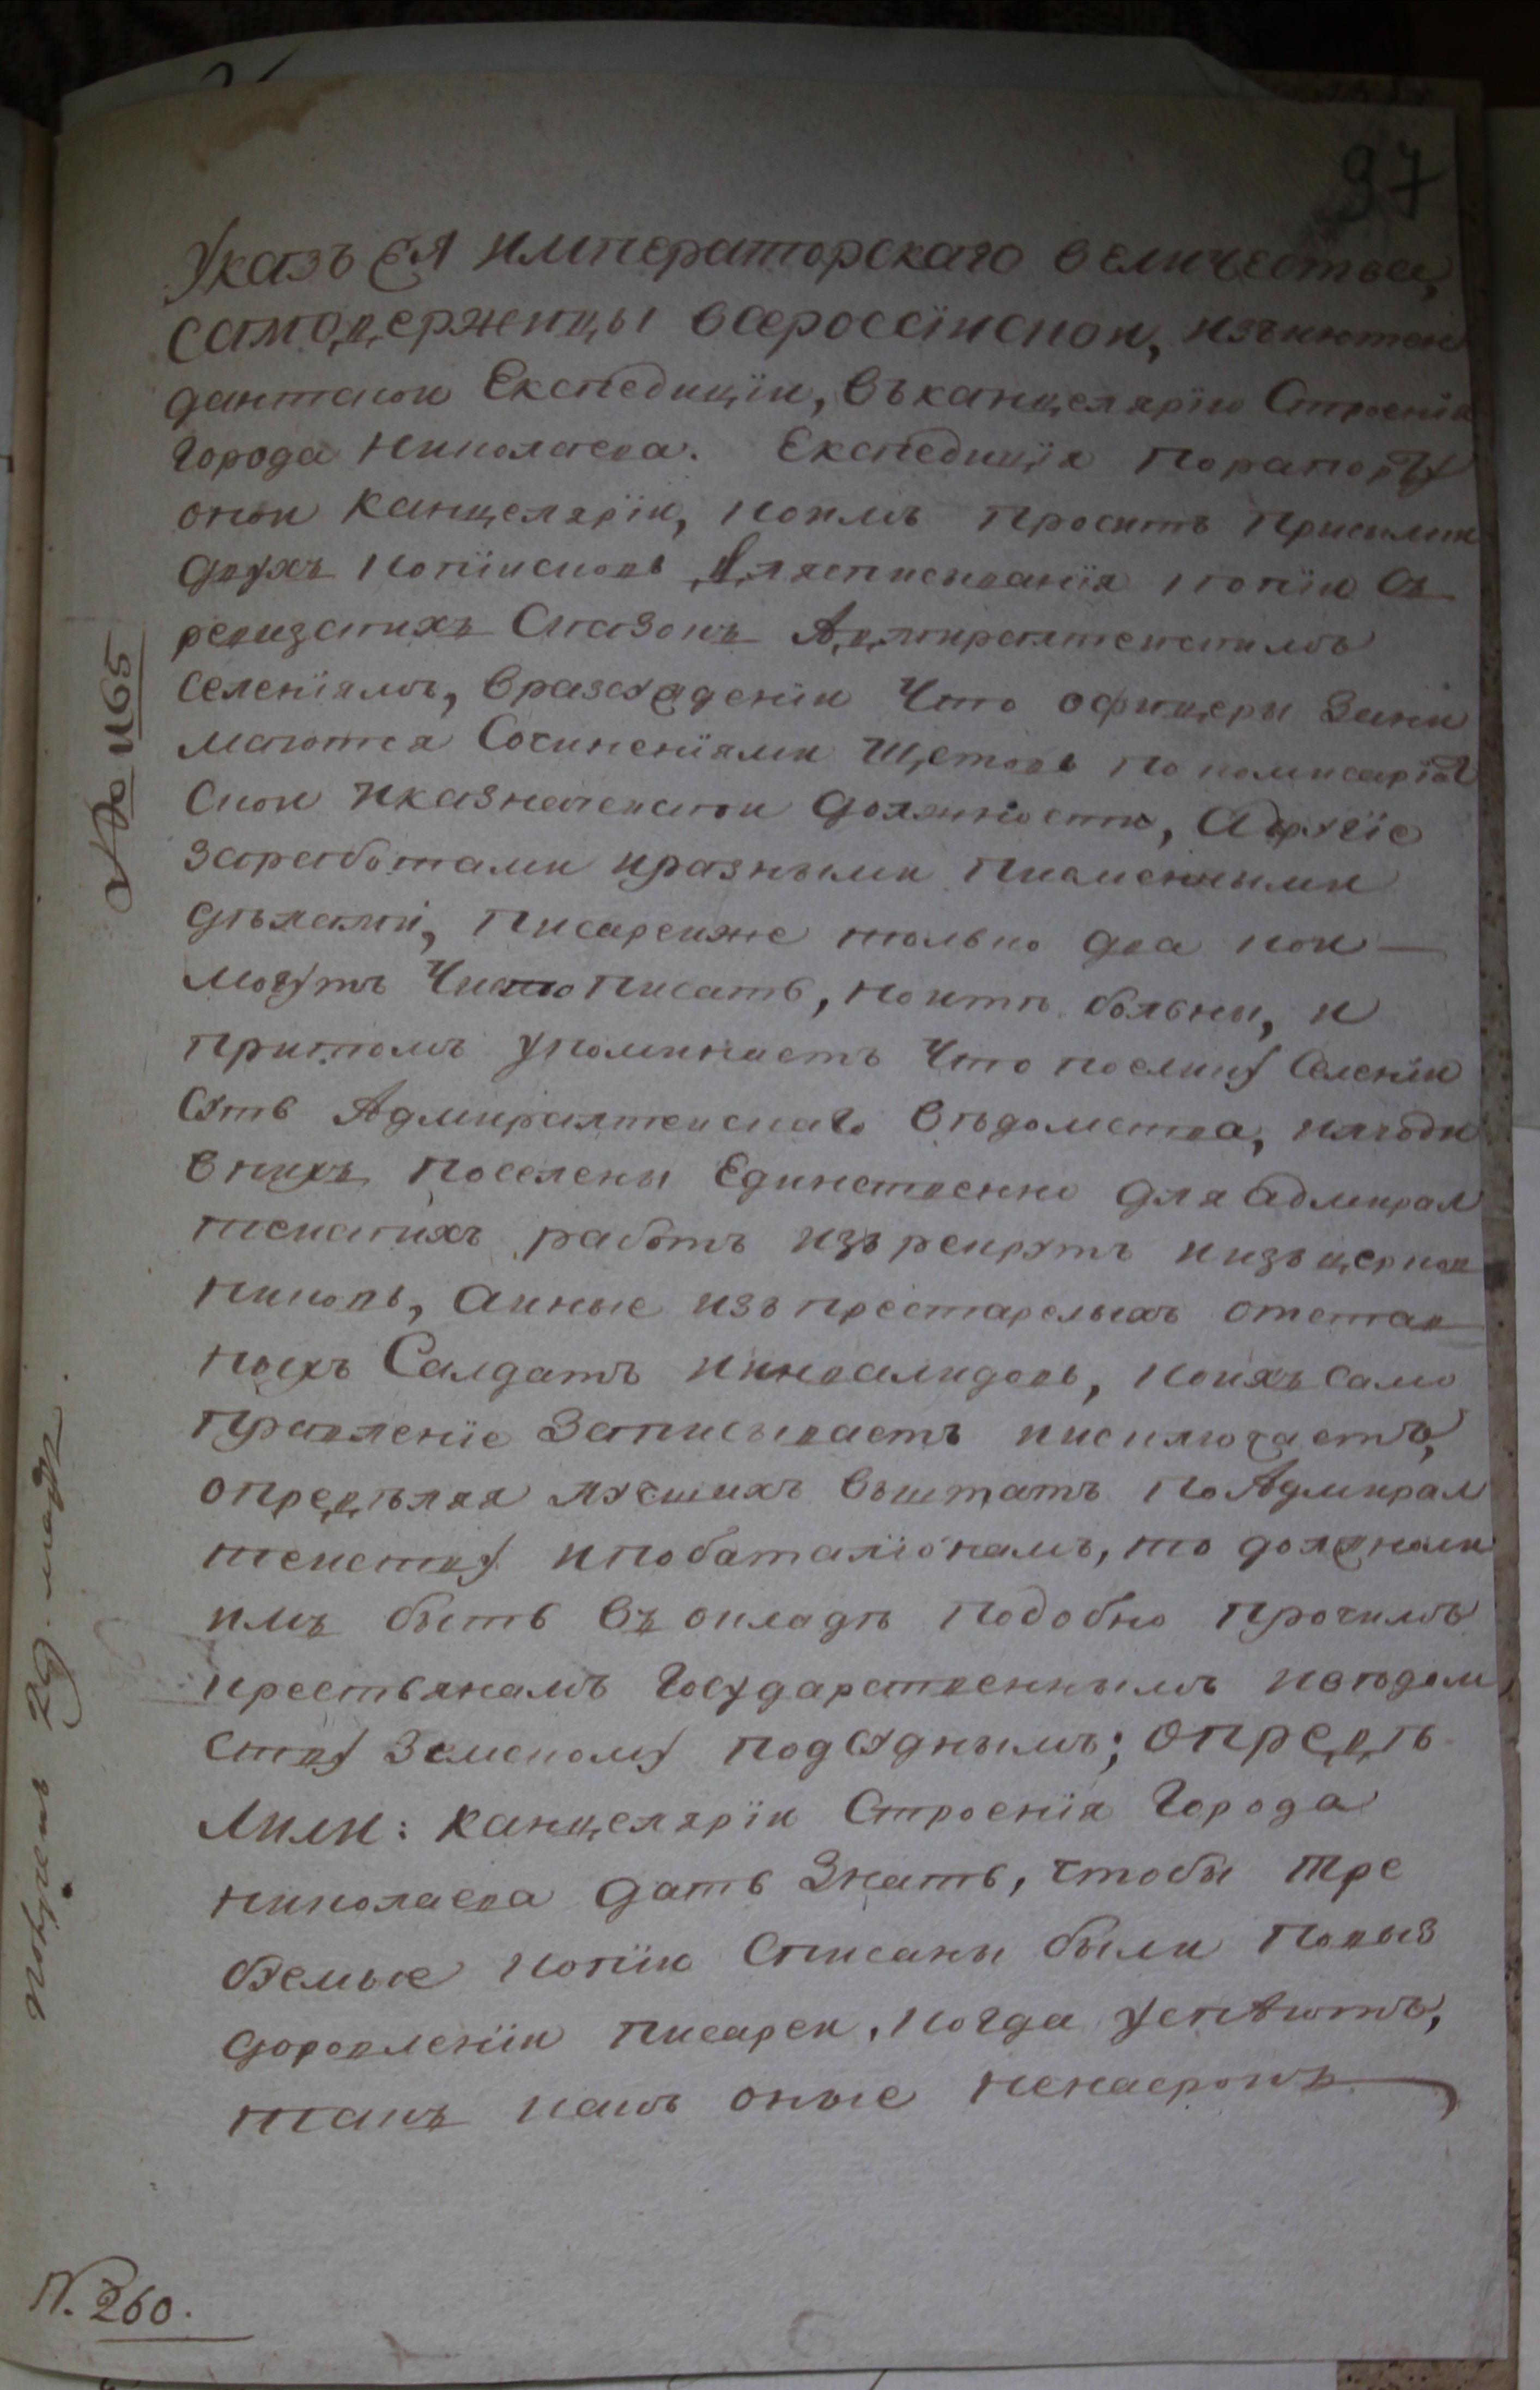 97
Указъ Ея императорскаго величества,
самодержицы всероссїиской, изъинтен
дантской Експедицїи, въканцелярїю Строенїя
города николаева. Експедицїя порапорту
оной канцелярїи, коимъ проситъ присылки
двухъ копїистовъ длясписыванїя копїи съ
ревизскихъ сказокъ Адмиралтейскимъ
селенїямъ, вразсужденїи что офицеры зани
маются Сочиненїями щетовъ по комисарїат
ской иказначейской должности, адругїе
заработами иразными писменными
дѣлами, писарейже только два кои
могутъ чисто писать, ноитѣ больны, и
притомъ упоминаетъ что поелику селенїи
суть Адмиралтейскаго вѣдомства, илюди
внихъ поселены Единственно для адмирал
тейскихъ работъ изъ рекрутъ иизъ церков
никовъ, аиные изъ престарелыхъ отстав
ныхъ Салдатъ иинвалидовъ, коихъ само
правленїе записываетъ иисключаетъ,
определяя лучшихъ въштатъ по Адмирал
тейству ипобаталїонамъ, то должноли
имъ быть въ окладѣ подобно прочимъ
крестьянамъ государственнымъ ивѣдом
ству земскому подсуднымъ; опредѣ
лили: канцелярїи Строенїя города
николаева дать знать, чтобы тре
буемые копїи списаны были повыз
доровленїи писарей, когда успѣютъ,
такъ какъ оные некасрокъ
№ 1165
получен 29 мар
N. 260.